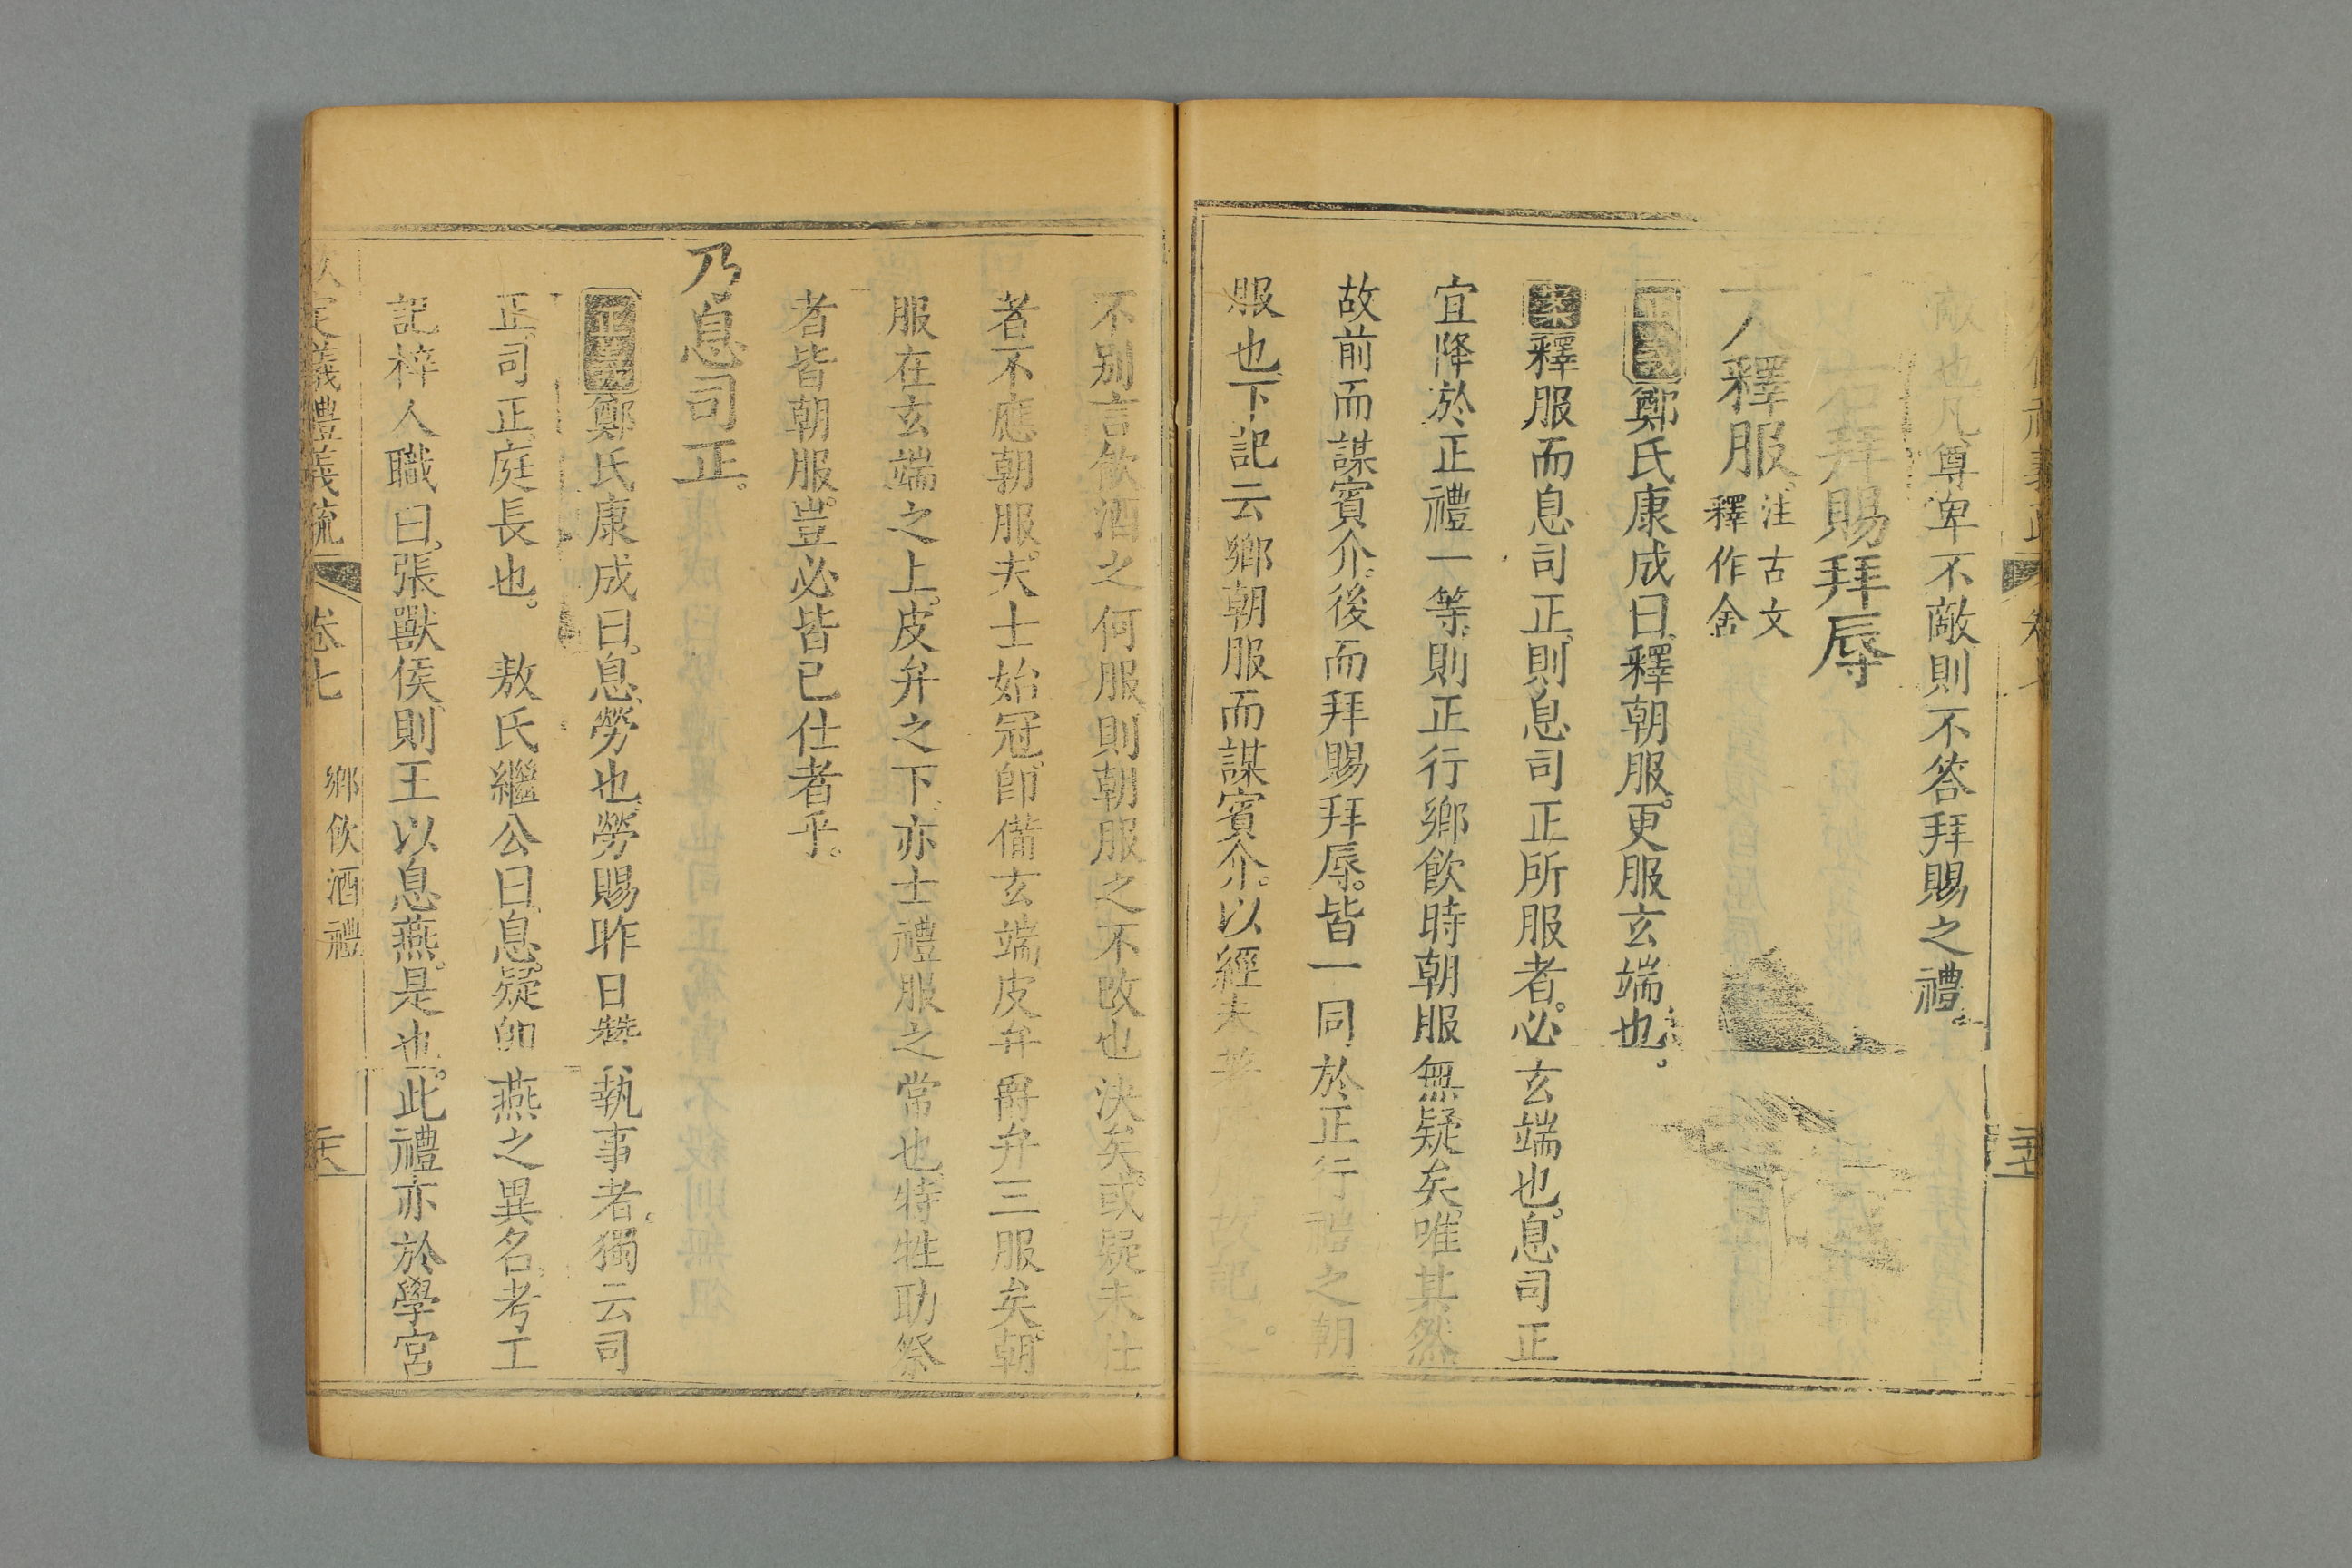 敵也凡尊卑不敵則不答拜賜之禮。
右拜賜拜辱
人釋服。注古文釋作舍
正義鄭氏康成曰。釋朝服。更服玄端也。
案釋服而息司正。則息司正所服者。必玄端也。息司正
宜降於正禮一等。則正行鄉飲時朝服無疑矣。唯其然
故前而謀賓介。後而拜賜拜辱。皆一同於正行禮之朝
服也。下記云鄉朝服而謀賓介。以經
不別言飲酒之何服則朝服之不改也決矣。或疑未仕
者不應朝服。夫士始冠。卽備玄端皮弁爵弁三服矣。朝
服在玄端之上。皮弁之下。亦士禮服之常也。特牲助祭
者皆朝服。豈必皆已仕者乎。
乃息司正。
正義鄭氏康成曰。息。勞也。勞賜昨日贊執事者。獨云司
正。司正庭長也。 敖氏繼公曰。息。疑卽燕之異名。考工
記梓人職曰。張獸侯。則王以息燕。是也。此禮亦於學宮
欽定義禮義疏 卷七 鄉飲酒禮 六